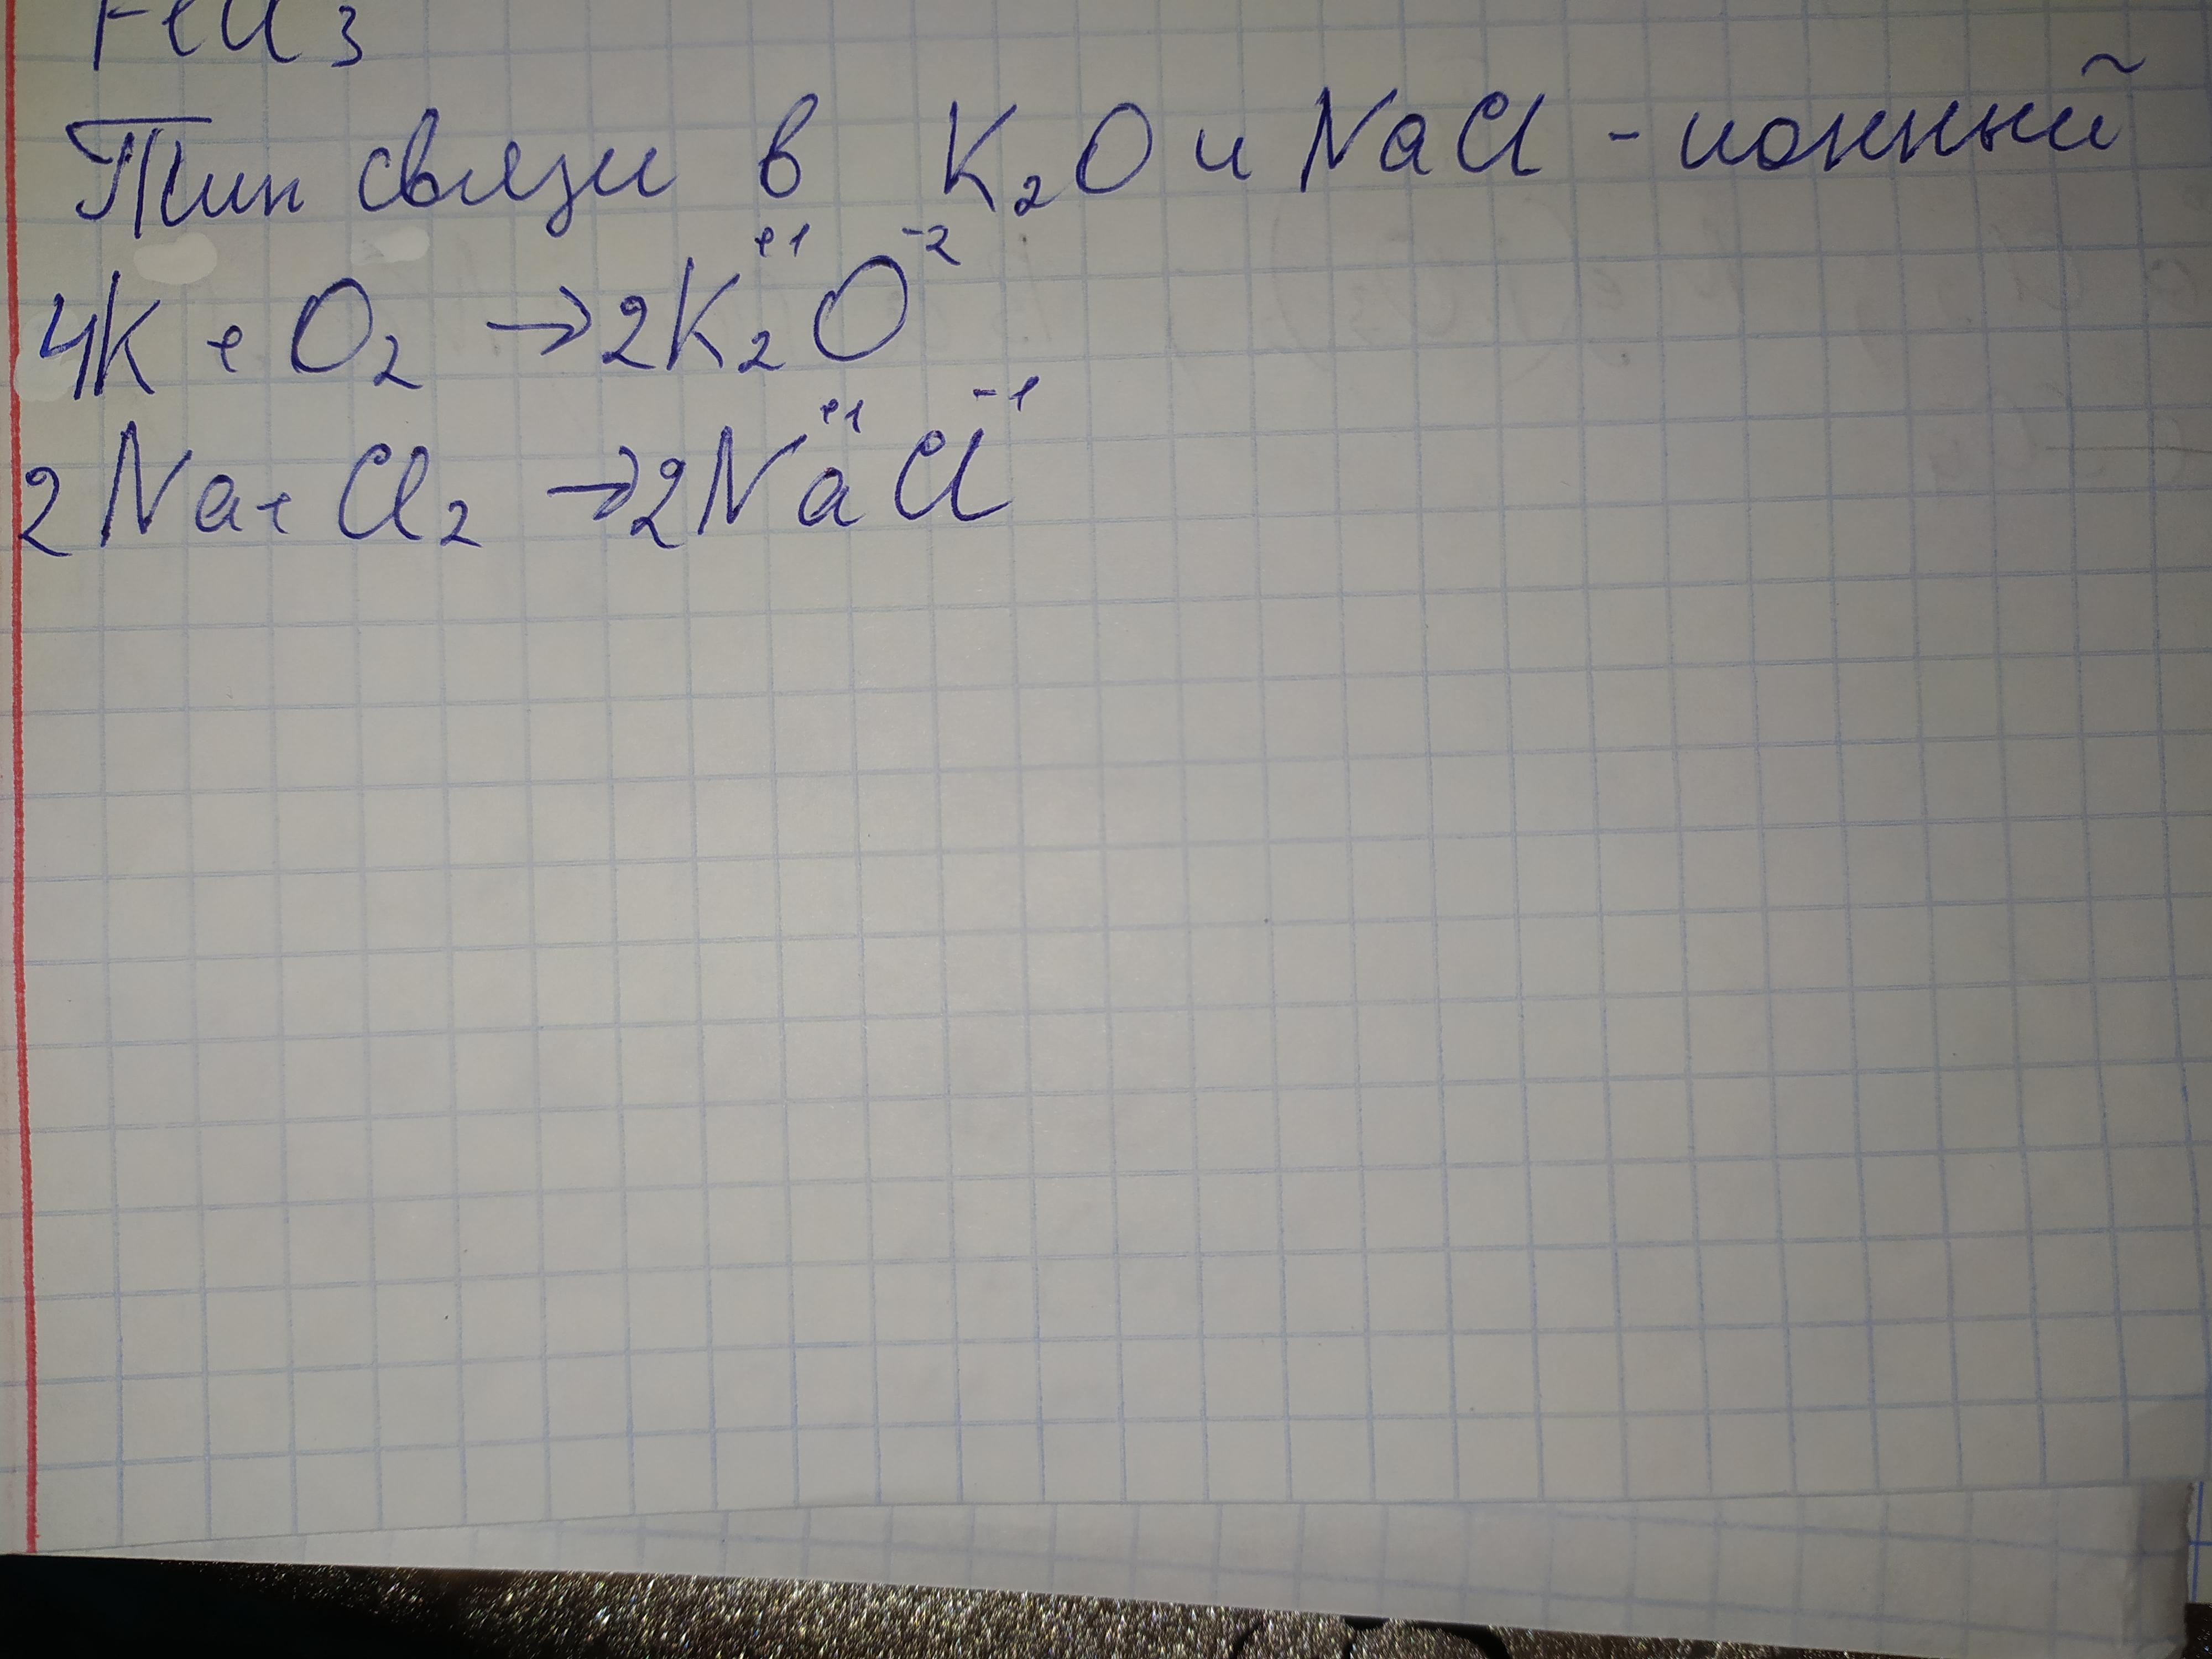 FeCl₃
Тип связи в K₂O и NaCl - ионный
4K + O₂ → 2K₂⁺¹O⁻²
2Na + Cl₂ → 2Na⁺¹Cl⁻¹